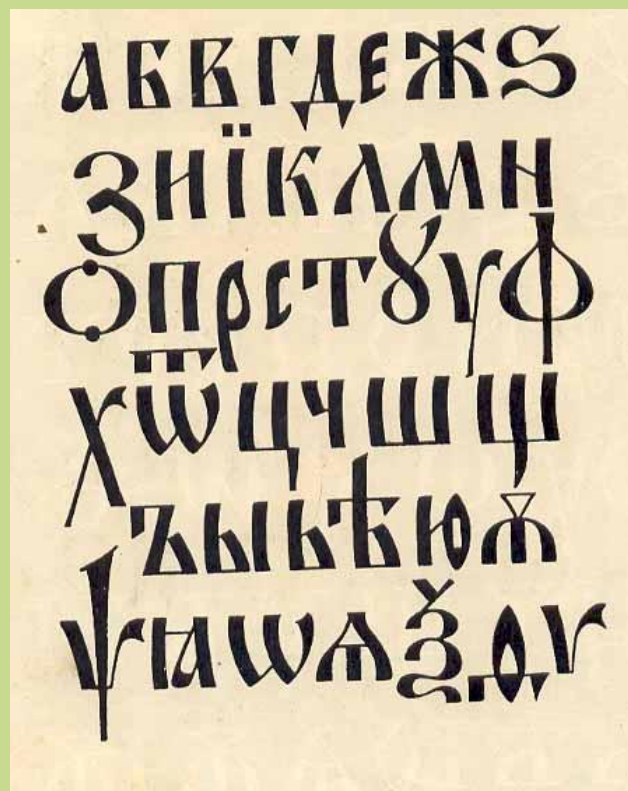 А Б В Г Д Е Ж Ѕ
З Н Ї К Л М Н
О П Р С Т Ꙋ У Ф
Х Ѿ Ц Ч Ш Щ
Ъ Ы Ь Ѣ Ю Ѫ
Ѱ Ꙗ Ѡ Ѧ Ѯ Ѳ Ѵ